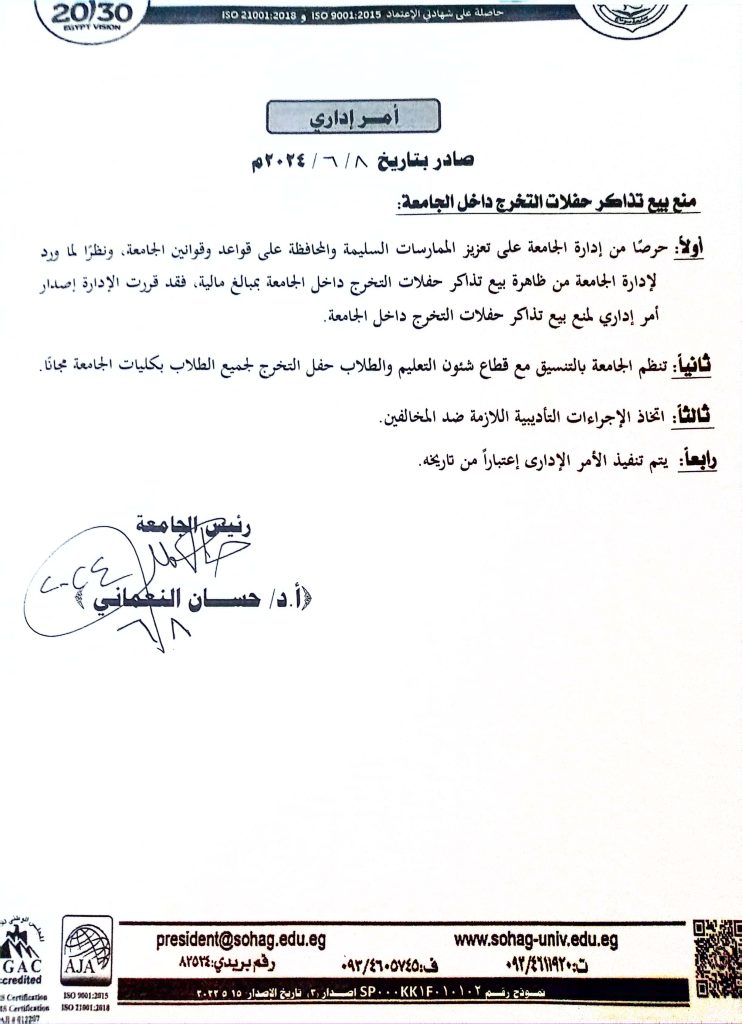 20/30
EGYPT VISION
حاصلة على شهادتي الإعتماد ISO 9001:2015 و ISO 21001:2018
أمـر إداري
صادر بتاريخ ٨ / ٦ / ٢٠٢٤م
منع بيع تذاكر حفلات التخرج داخل الجامعة:
أولاً: حرصًا من إدارة الجامعة على تعزيز الممارسات السليمة والمحافظة على قواعد وقوانين الجامعة، ونظرًا لما ورد
لإدارة الجامعة من ظاهرة بيع تذاكر حفلات التخرج داخل الجامعة بمبالغ مالية، فقد قررت الإدارة إصدار
أمر إداري لمنع بيع تذاكر حفلات التخرج داخل الجامعة.
ثانياً: تنظم الجامعة بالتنسيق مع قطاع شئون التعليم والطلاب حفل التخرج لجميع الطلاب بكليات الجامعة مجانًا.
ثالثاً: اتخاذ الإجراءات التأديبية اللازمة ضد المخالفين.
رابعاً: يتم تنفيذ الأمر الإدارى إعتباراً من تاريخه.
رئيس الجامعة
﴿أ.د/ حســـان النعماني﴾
٢٠٢٤
٦/٨
president@sohag.edu.eg
www.sohag-univ.edu.eg
ت:٠٩٣/٤٦١١٩٢٠
ف:٠٩٣/٤٦٠٥٧٤٥
رقم بريدي:٨٢٥٢٤
نموذج رقم SP٠٠٠KK1F٠١٠١٠٢ اصدار ٣، تاريخ الاصدار ١٥ ٥ ٢٠٢٢
GAC
ccredited
S Certification
MS Certification
AJA
ISO 9001:2015
ISO 21001:2018